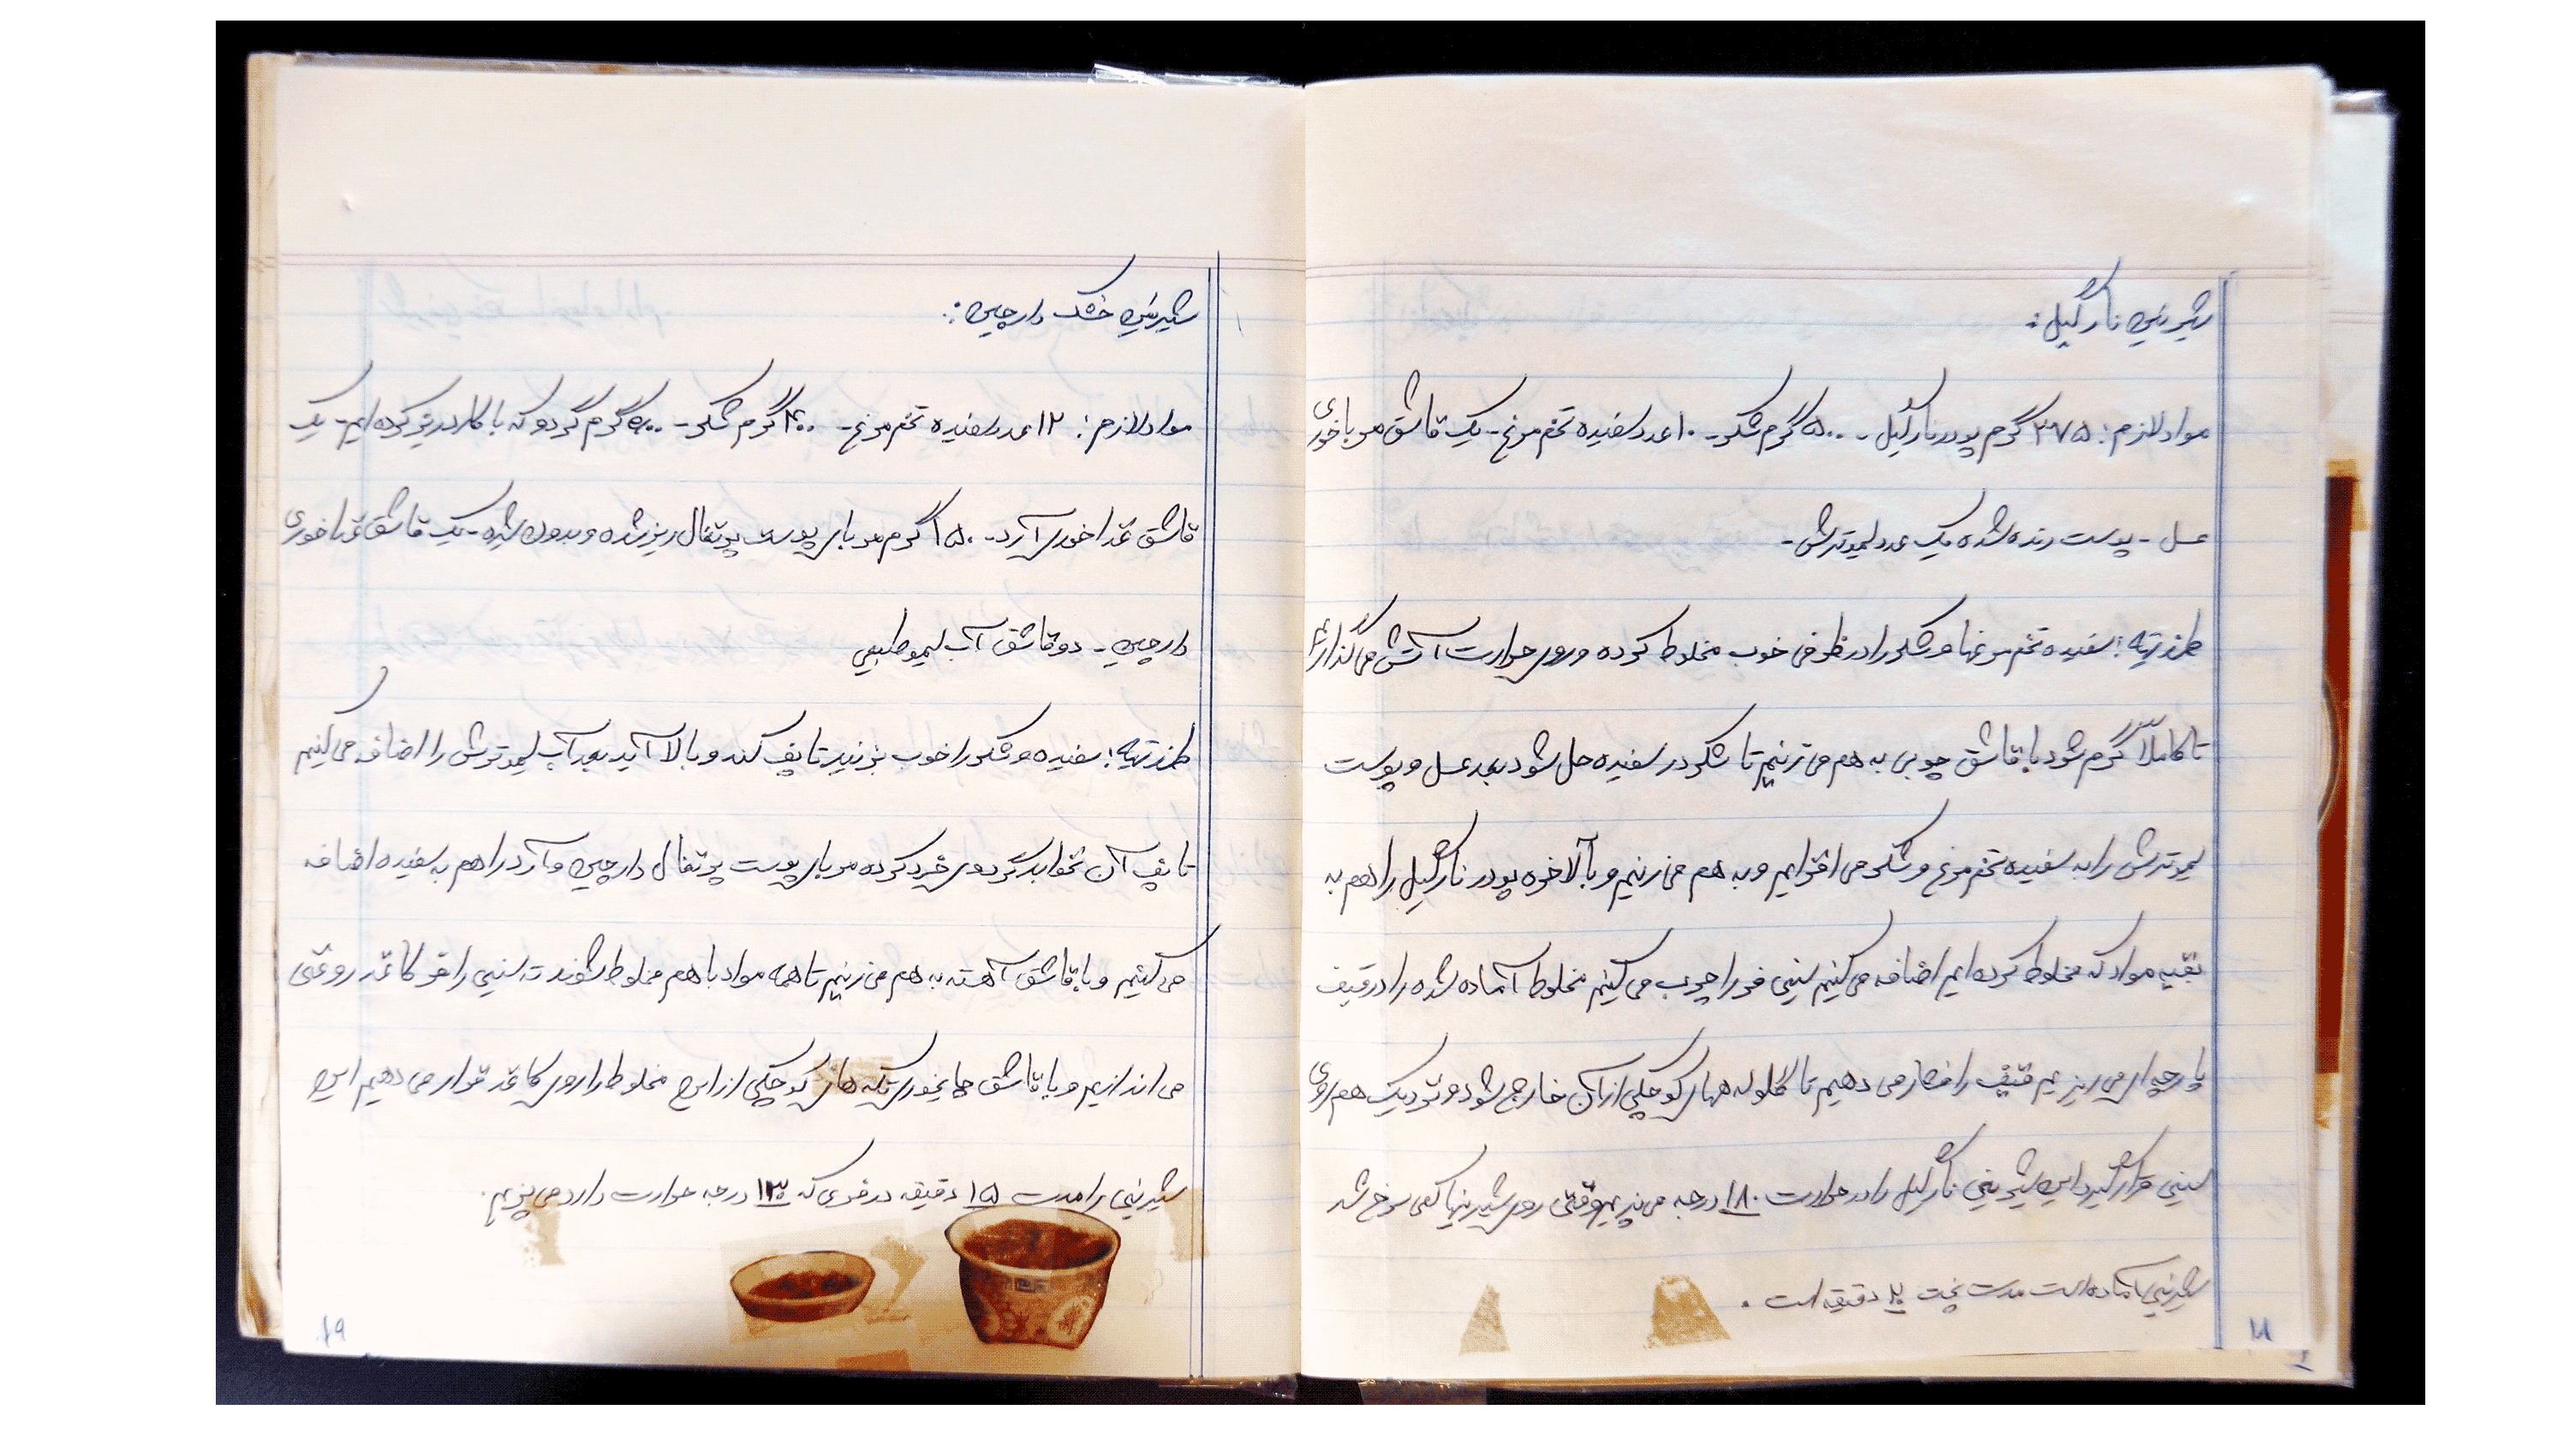 شیرینی نارگیل:
مواد لازم: ۳۷۵ گرم پودر نارگیل - ۵۰۰ گرم شکر - ۱۰ عدد سفیده تخم مرغ - یک قاشق مرباخوری
عسل - پوست رنده شده یک عدد لیموترش -
طرز تهیه: سفیده تخم مرغها و شکر را در ظرفی خوب مخلوط کرده و روی حرارت آتش می گذاریم
تا کاملاً گرم شود با قاشق چوبی به هم می زنیم تا شکر در سفیده حل شود بعد عسل و پوست
لیموترش را به سفیده تخم مرغ و شکر می افزایم و به هم می زنیم و بالاخره پودر نارگیل را هم به
بقیه مواد که مخلوط کرده ایم اضافه می کنیم سینی فر را چرب می کنیم مخلوط آماده شده را در قیف
پارچه ای می ریزیم قیف را فشار می دهیم تا گلوله های کوچکی از آن خارج شود و نزدیک هم روی
سینی قرار گیرد این شیرینی نارگیل را در حرارت ۱۸۰ درجه می پزیم وقتی روی شیرینیها کمی سرخ شد
شیرینی آماده است مدت پخت ۲۰ دقیقه است.
۱۸
شیرینی خشک دارچین:
مواد لازم: ۱۲ عدد سفیده تخم مرغ - ۴۰۰ گرم شکر - ۵۰۰ گرم گردو که با کارد ریز کرده ایم - یک
قاشق غذاخوری آرد - ۱۵۰ گرم مربای پوست پرتقال ریز شده و بدون شیره - یک قاشق غذاخوری
دارچین - دو قاشق آب لیمو طبیعی
طرز تهیه: سفیده و شکر را خوب بزنید تا پف کند و بالا آید بعد آب لیموترش را اضافه می کنیم
تا پف آن نخوابد گردوی خرد کرده مربای پوست پرتقال دارچین و آرد را هم به سفیده اضافه
می کنیم و با قاشق آهسته به هم می زنیم تا همه مواد با هم مخلوط شوند ته سینی را هر کاغذ روغنی
می اندازیم و با قاشق چایخوری تکه های کوچکی از این مخلوط را روی کاغذ قرار می دهیم این
شیرینی را مدت ۱۵ دقیقه در فری که ۱۳۰ درجه حرارت دارد می پزیم.
۱۹